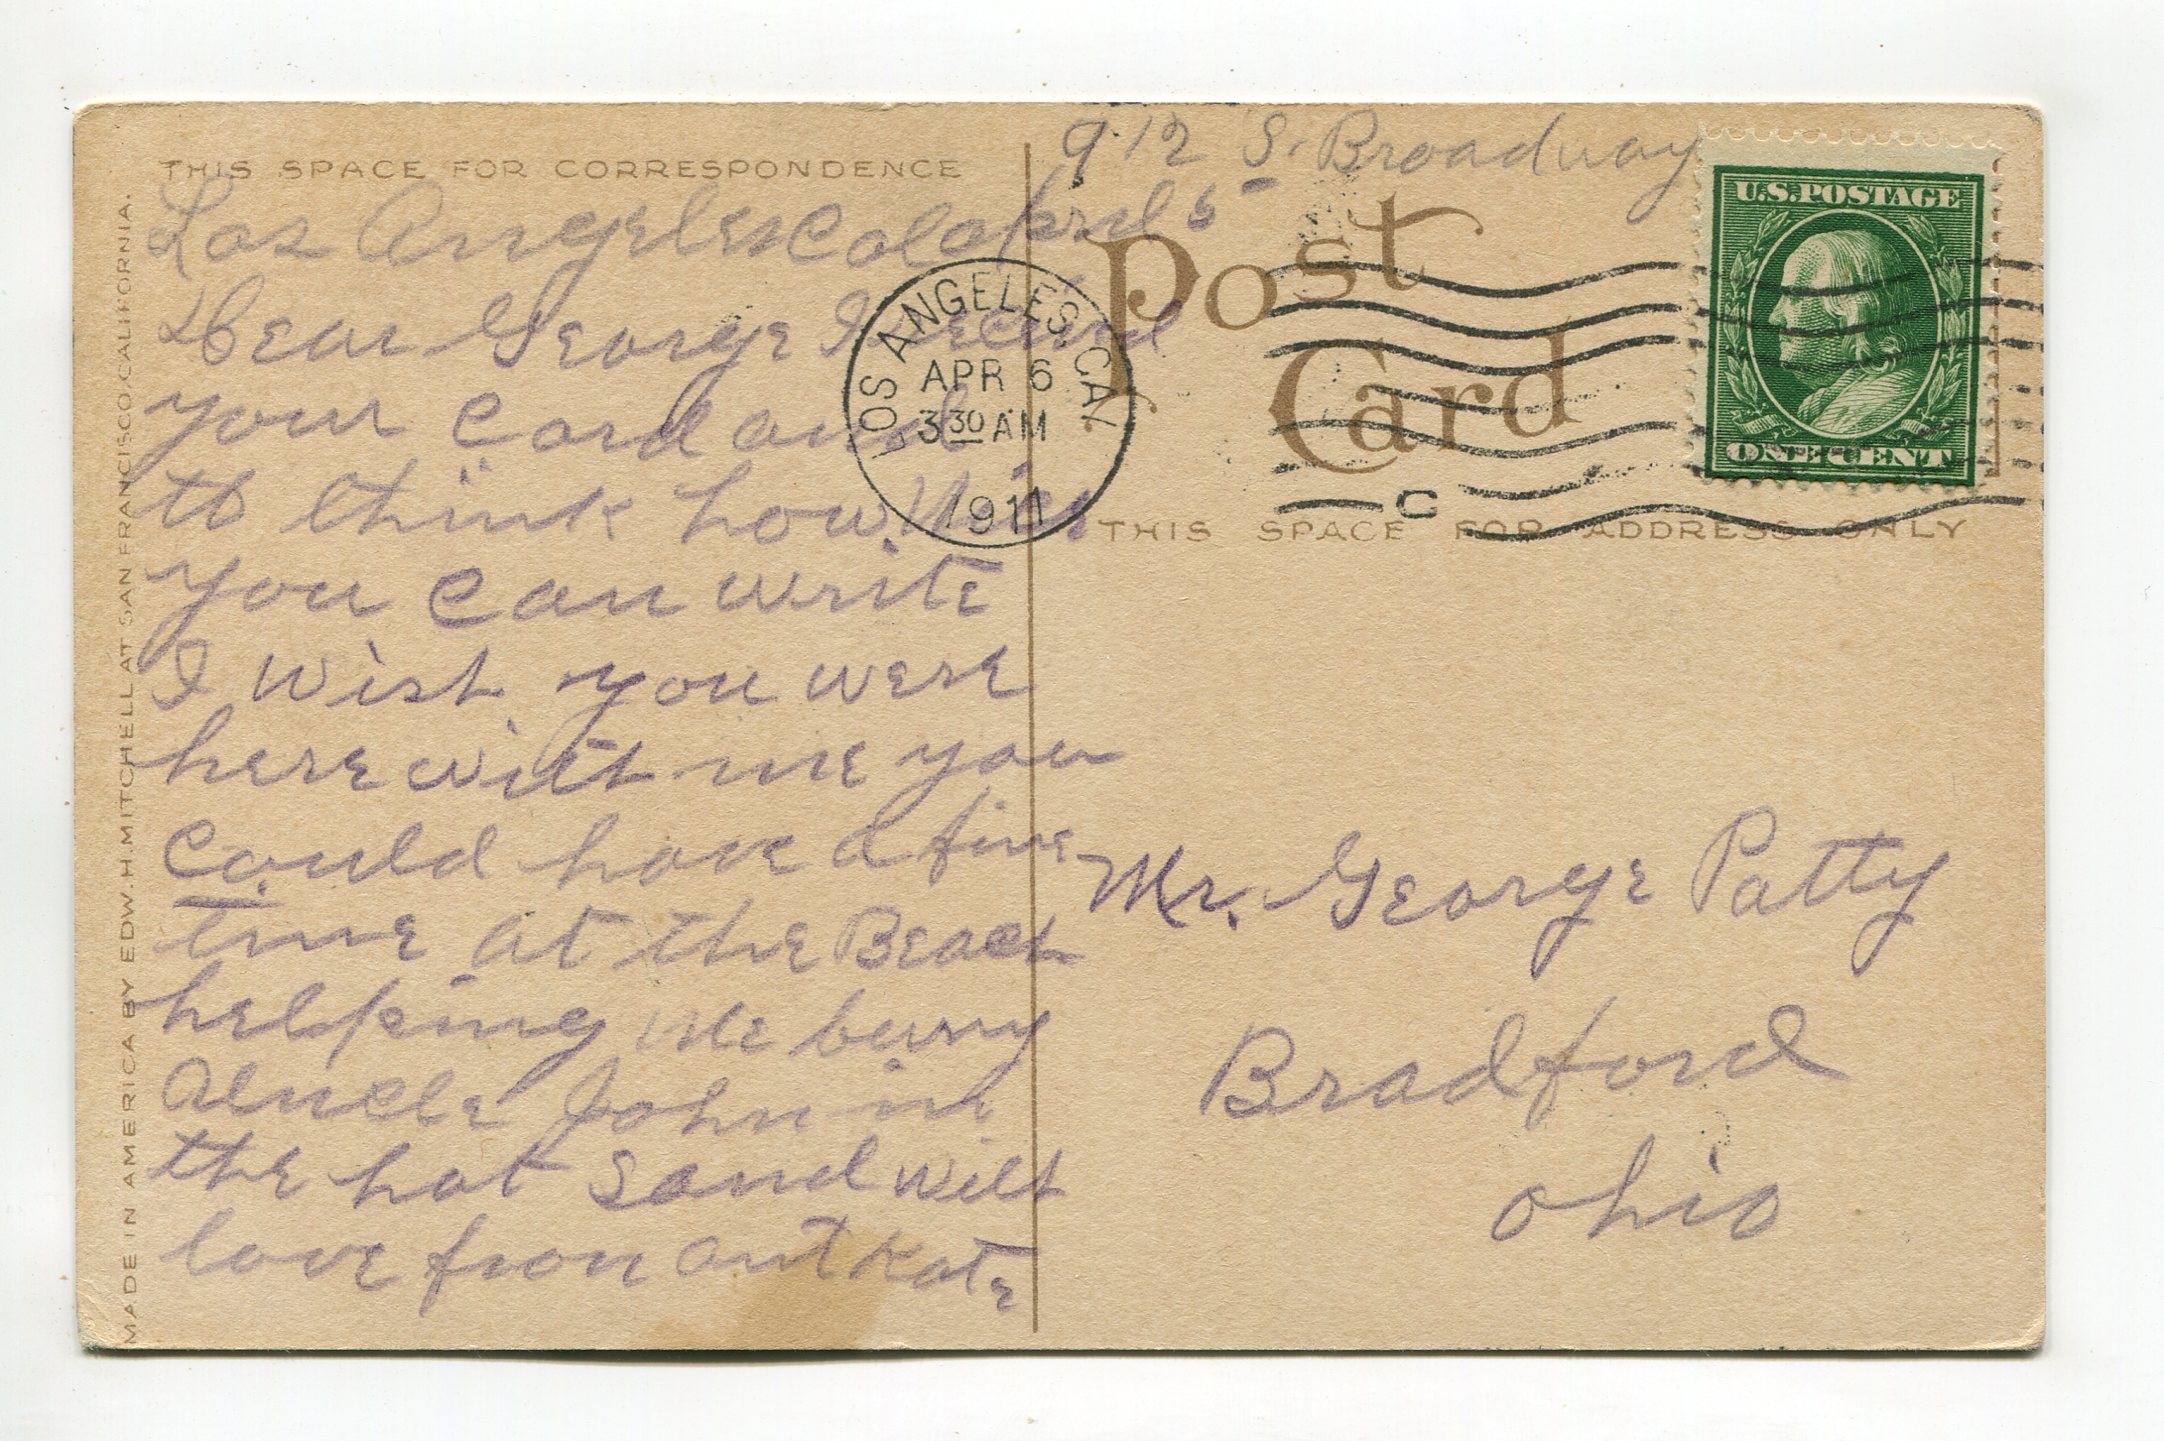 THIS SPACE FOR CORRESPONDENCE
912 S. Broadway
Los Angeles Cal April 5
Dear George I recived
your card and
to think how nice
you can write
I wish you were
here with me you
could have a fine
time at the Beach
helping me burry
Uncle John in
the hot sand with
love from ant Kate
MADE IN AMERICA BY EDW. H. MITCHELL AT SAN FRANCISCO, CALIFORNIA.
LOS ANGELES, CAL.
APR 6
3 30 AM
1911
C
Post
Card
U.S. POSTAGE
ONE CENT
THIS SPACE FOR ADDRESS ONLY
Mr. George Patty
Bradford
Ohio